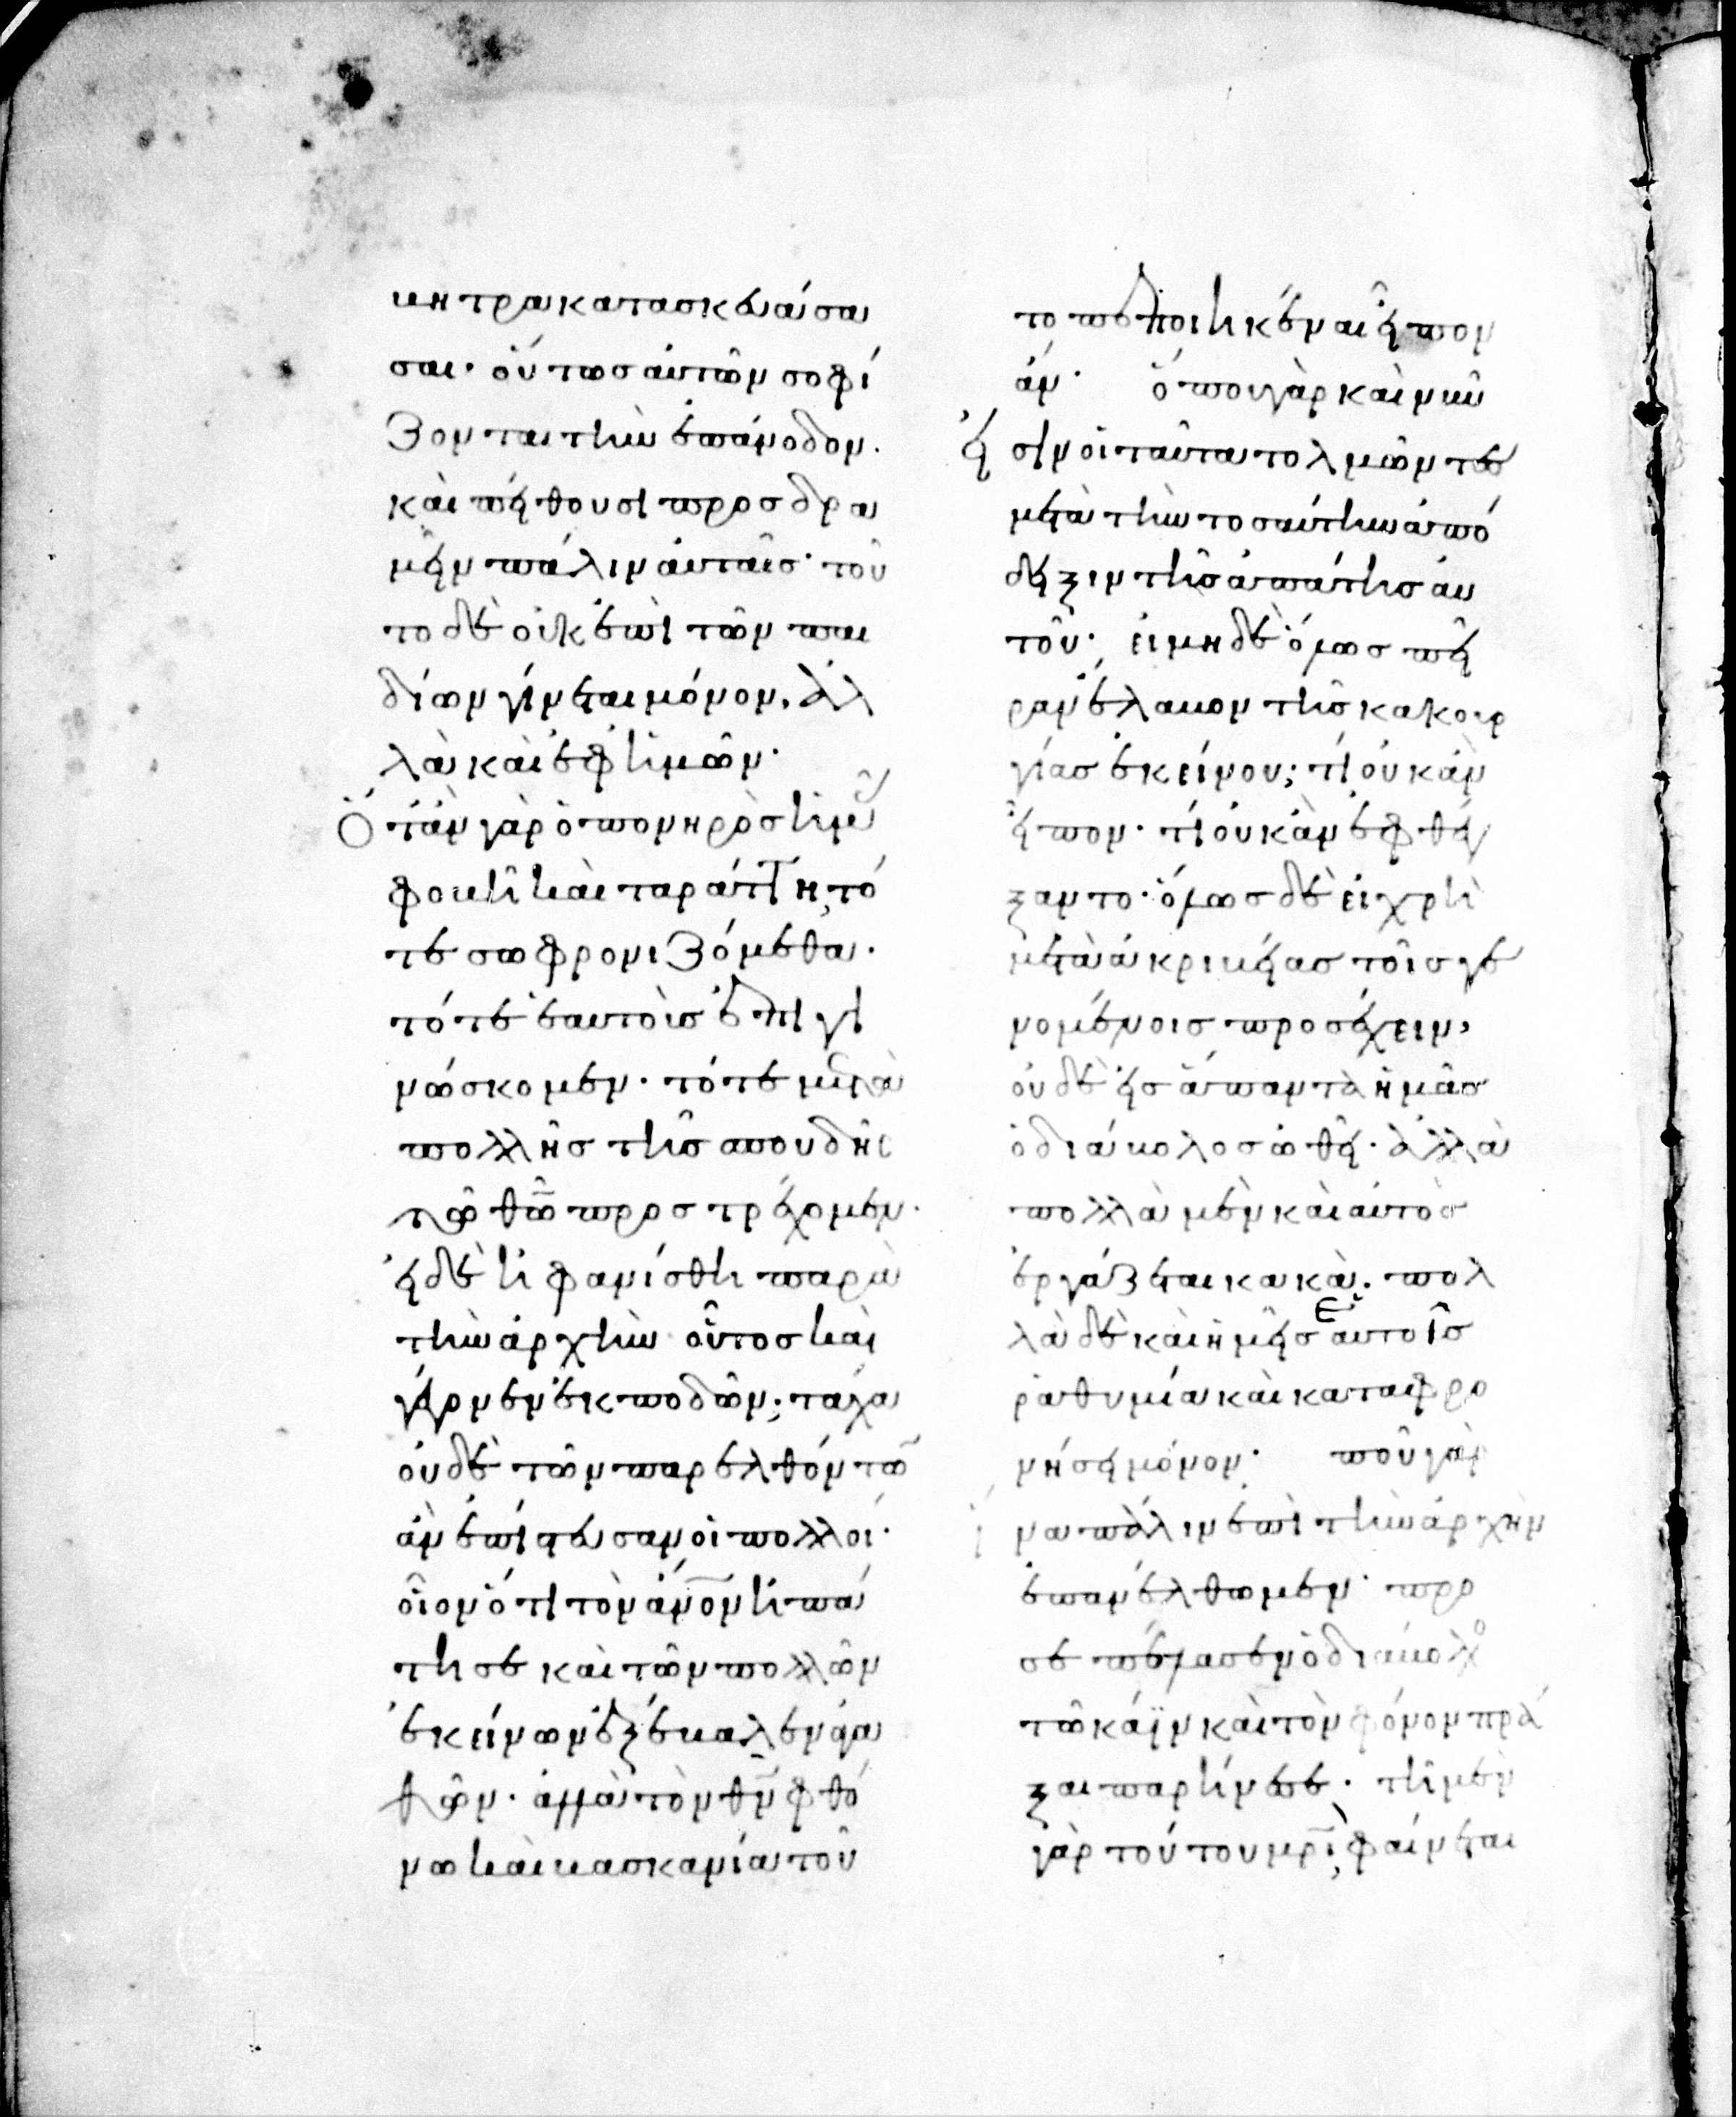 κητρα κατασκευάσα
σαι· οὕτως αὐτῶν σοφί
ζονται τὴν ἐπάνοδον·
καὶ πείθουσι προσδρα
μεῖν πάλιν αὐταῖς· τοῦ
το δὲ οὐκ ἐπὶ τῶν παι
δίων γίνεται μόνον, ἀλ
λὰ καὶ ἐφ ἡμῶν·
Ὅταν γὰρ ὁ πονηρὸς ἡμᾶς
φοβῆ καὶ ταράττη, τό
τε σωφρονιζόμεθα·
τότε ἑαυτοὺς ἐπιγι
νώσκομεν· τότε μετὰ
πολλῆς τῆς σπουδῆς
τῷ θῶ προστρέχομεν·
εἰ δὲ ἠφανίσθη παρὰ
τὴν ἀρχὴν οὗτος καὶ
γέγονεν ἐκποδῶν; τάχα
οὐδὲ τῶν παρελθόντων
ἂν ἐπίστευσαν οἱ πολλοί·
οἷον ὅτι τὸν ἄνον ἠπά
τησε καὶ τῶν πολλῶν
ἐκείνων ἐξέβαλεν ἀγα
θῶν· ἀλλὰ τὸν θν φθό
νω καὶ βασκανία τοῦ
το πεποιηκέναι εἶπον
ἄν· ὅπου γὰρ καὶ νῦν
εἰσὶν οἱ ταῦτα τολμῶντες
μετὰ τὴν τοσαύτην ἀπό
δειξιν τῆς ἀπάτης αὐ
τοῦ· εἰ μηδὲ ὅλως πεῖ
ραν ἔλαβον τῆς κακουρ
γίας ἐκείνου; τί οὐκ ἂν
εἶπον· τί οὐκ ἂν ἐφθέγ
ξαντο· ὅλως δὲ εἰ χρὴ
μετὰ ἀκριβείας τοῖς γε
νομένοις προσέχειν,
οὐδὲ εἰς ἅπαντα ἡμᾶς
ὁ διάβολος ὠθεῖ· ἀλλὰ
πολλὰ μὲν καὶ αὐτὸς
ἐργάζεται κακά· πολ
λὰ δὲ καὶ ἡμεῖς ἑαυτοῖς
ῥαθυμία καὶ καταφρο
νήσει μόνον· ποῦ γὰρ
ἵνα πάλιν ἐπὶ τὴν ἀρχὴν
ἐπανέλθωμεν· προ
σεπέλασεν ὁ διάβολος
τῶ κάϊν καὶ τὸν φόνον πρᾶ
ξαι παρήνεσε· τῆ μὲν
γὰρ τούτου μρὶ, φαίνεται